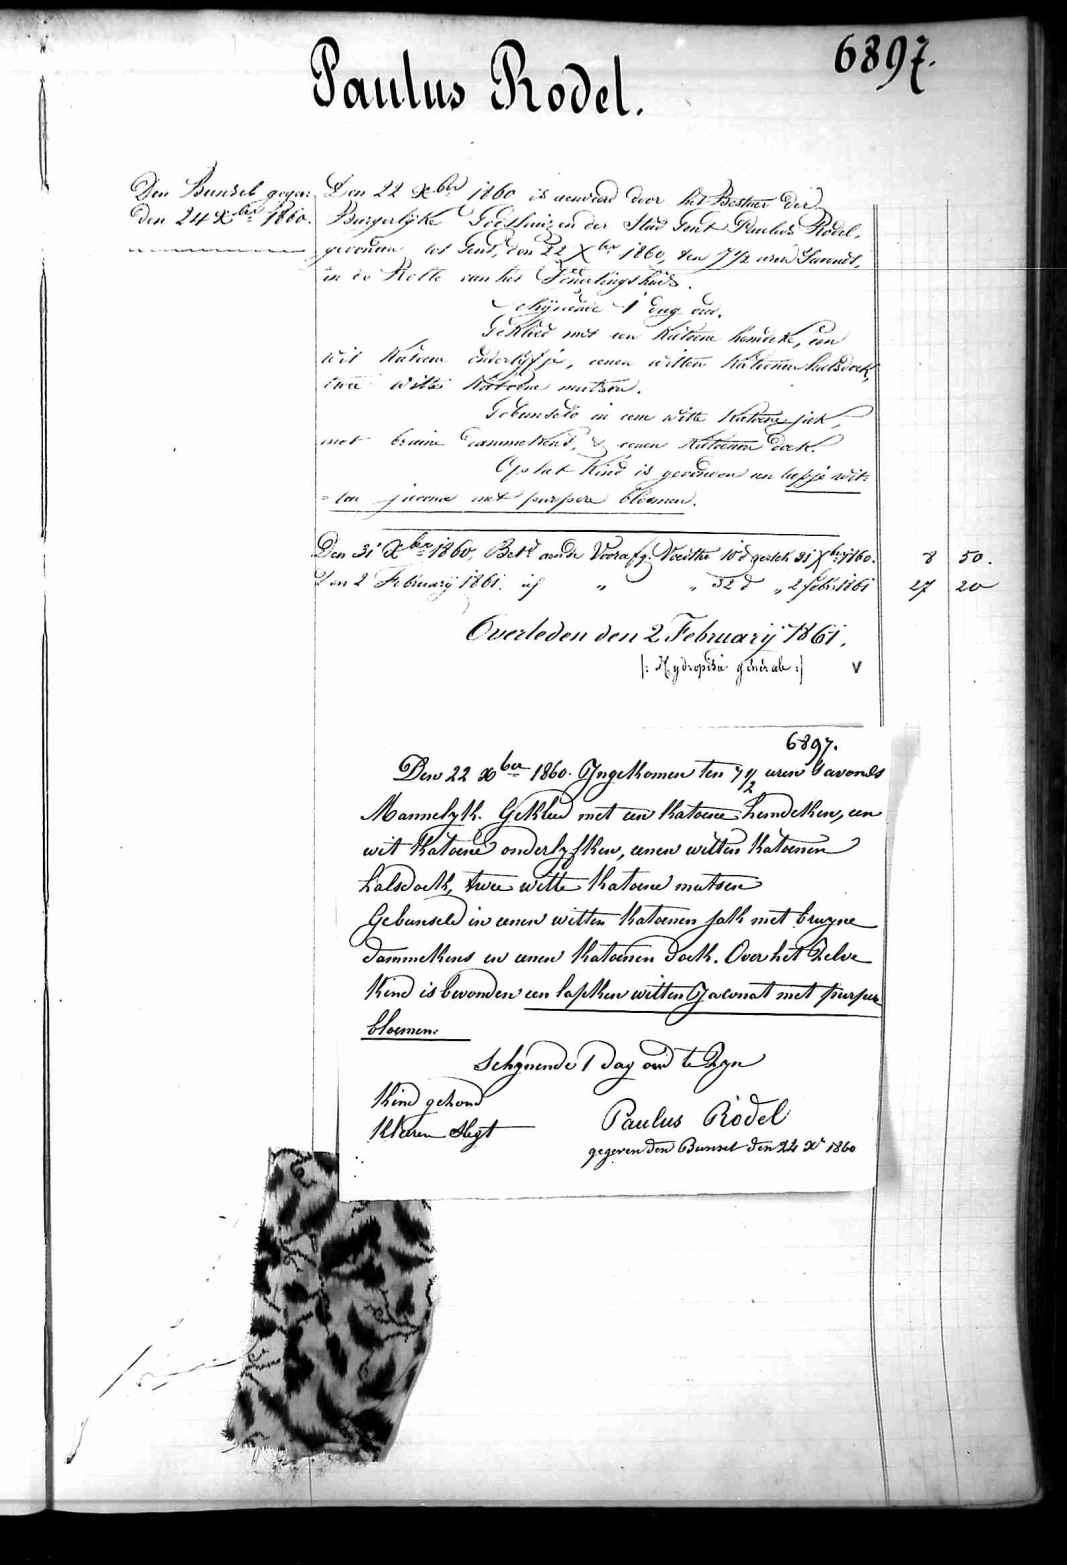 6897.
Paulus Rodel.
Den Bunsel gege=
den 24 Xber 1860.
Den 22 Xber 1860 is aenveerd door het Bestier der
Burgerlijke Godshuizen der Stad Gent Paulus Rodel,
gevonden tot Gent, den 22 Xber 1860, ten 7 1/2 uren 's avonds,
in de Rolle van het Vondelingshuis.
Schijnende 1 dag oud.
Gekleed met een katoene hemdeke, een
wit katoen onderlijfje, eenen witten katoenen halsdoek,
twee witte katoene mutsen.
Gebunseld in eene witte katoene jak,
met bruine dammekens, & eenen katoenen doek.
Op het kind is gevonden een lapje wit=
=ten jaconat met purpere bloemen.
Den 31 Xber 1860. Betd aende Voorafg. Voedster 10 d gesteh 31 Xber 1860. 8 50.
Den 2 February 1861. " " 32 d " 2 feb: 1861 27 20
Overleden den 2 February 1861.
|: Hydropisie générale :| v
6897.
Den 22 Xber 1860. Ingekomen ten 7 1/2 uren 's avonds
Mannelyk. Gekleed met een katoene hemdeken, een
wit katoene onderlyfken, eenen witten katoenen
halsdoek, twee witte katoene mutsen
Gebunseld in eenen witten katoenen jak met bruyne
dammekens en eenen katoenen doek. Over het zelve
kind is bevonden een lapken witten Jaconat met purper
bloemen.
Schynende 1 dag oud te zyn
Kind gezond
Paulus Rodel
gegeven den Bunsel den 24 Xr 1860